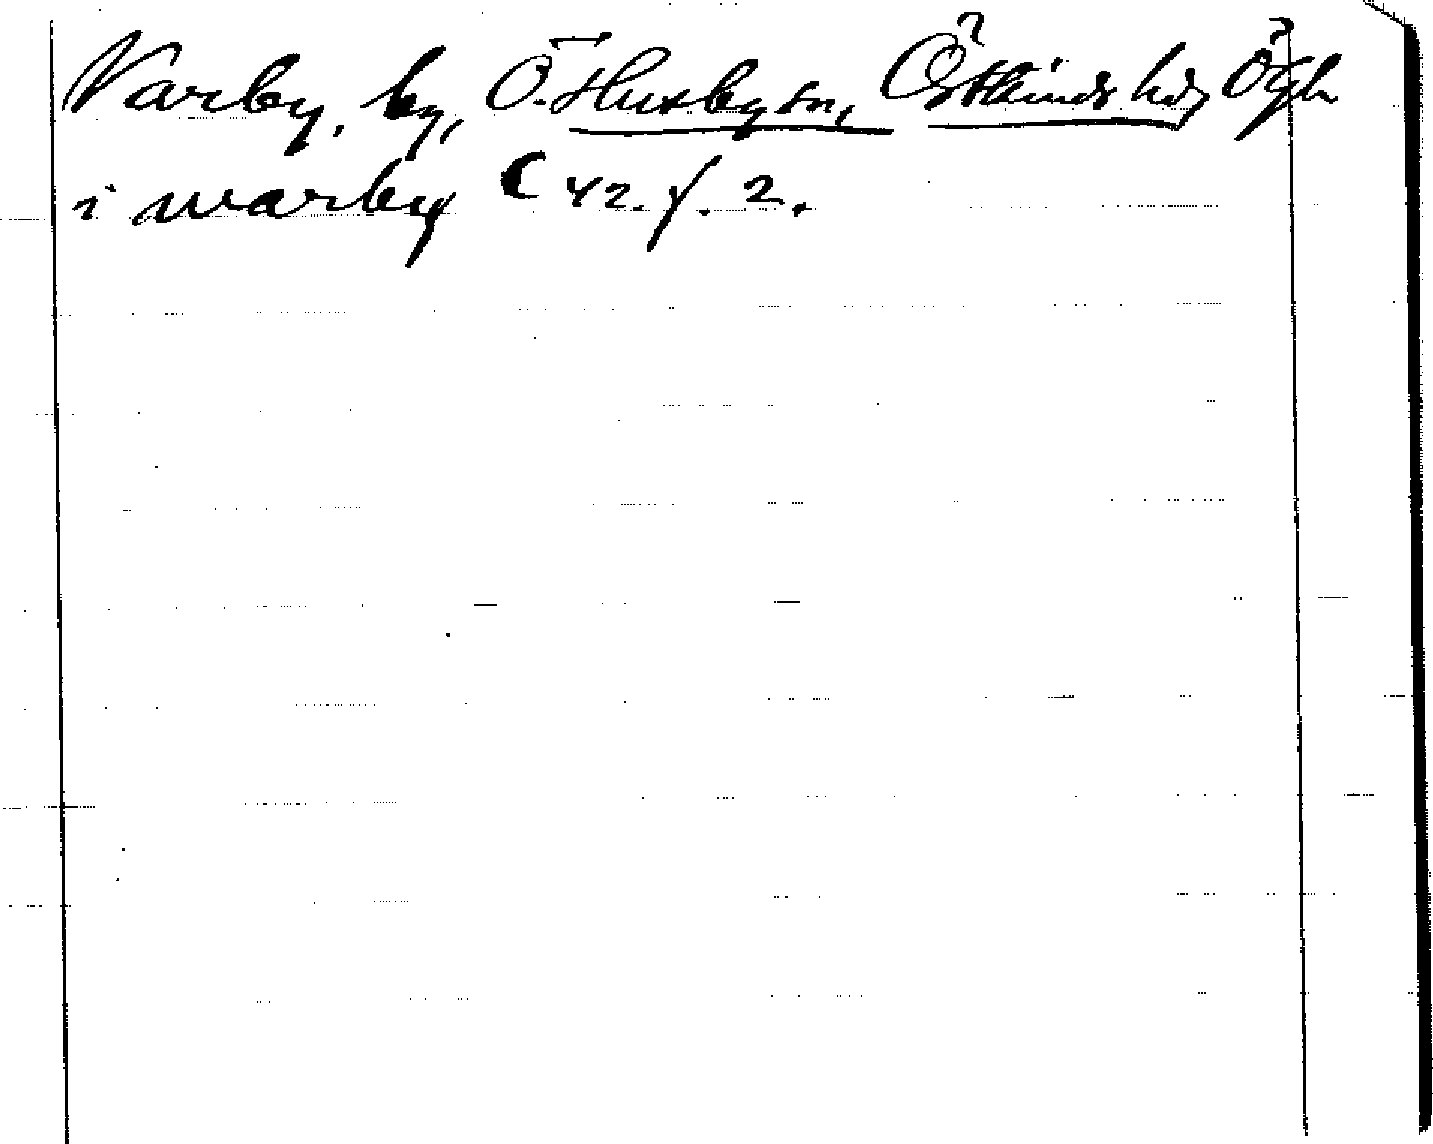 Varby, by, Ö. Husby sn, Östkinds hd, Ögl.
i warby C 42. f. 2.